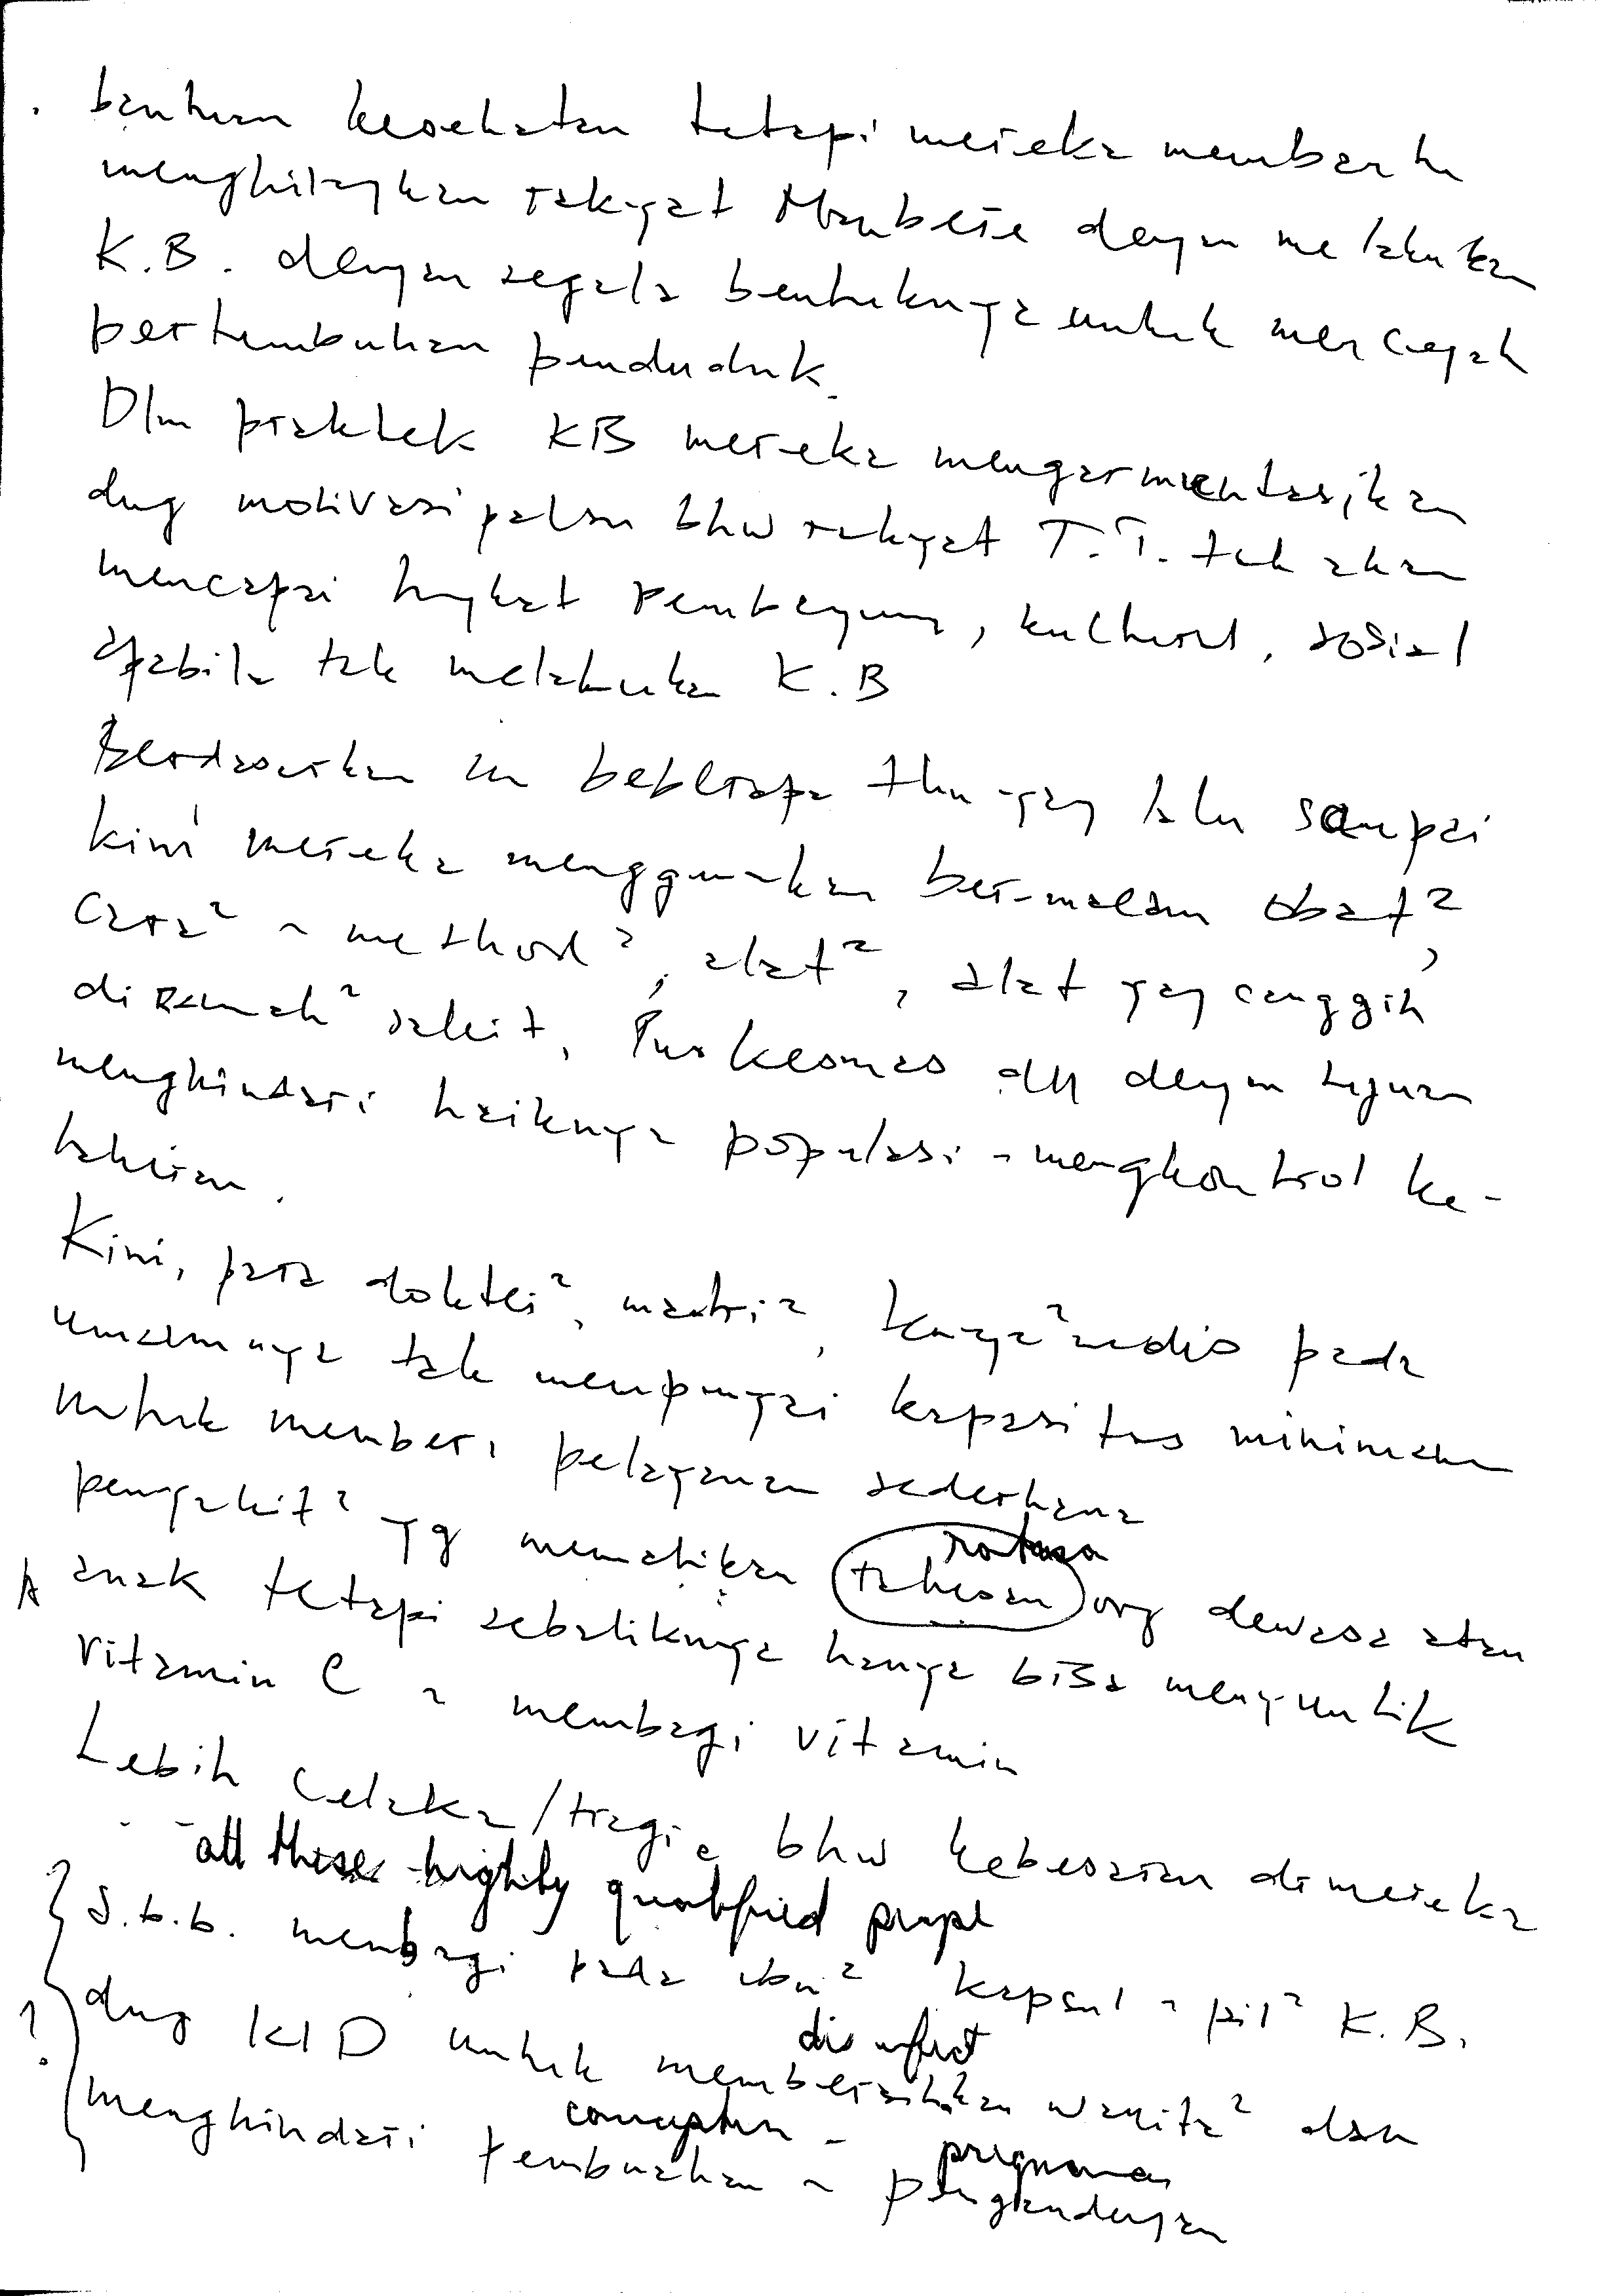 bantuan kesehatan tetapi mereka membantu
menghilangkan rakyat Maubere dengan melakukan
K.B. dengan segala bentuknya untuk mencegah
pertumbuhan penduduk.
Dlm praktek KB mereka mengarmentasikan
dng motivasi palsu bhw rakyat T.T. tak akan
mencapai tingkat pembangunan, kultural, sosial
apabila tak melakukan K.B
Berdasarkan ini beberapa thn yang lalu sampai
kini mereka menggunakan ber-macam obat²,
cara² ~ method², alat², alat yang canggih
di rumah² sakit, Puskesmas dll dengan tujuan
menghindari naiknya populasi ~ mengkontrol ke-
lahiran.
Kini, para dokter², mantri², tenaga² medis pada
umumnya tak mempunyai kapasitas minimum
untuk memberi pelayanan sederhana
penyakit² yg mematikan ratusan org dewasa atau
tahunan
anak tetapi sebaliknya hanya bisa menyuntik
vitamin C ~ membagi vitamin
Lebih celaka/tragis bhw kebesaran di mereka
all these highly qualified people
s.b.b. membagi pada ibu² kapsul ~ pil² K.B.
dng KID untuk membersihkan wanita² dan
disinfect
menghindari pembuahan ~ pengandungan
conception - pregnancy